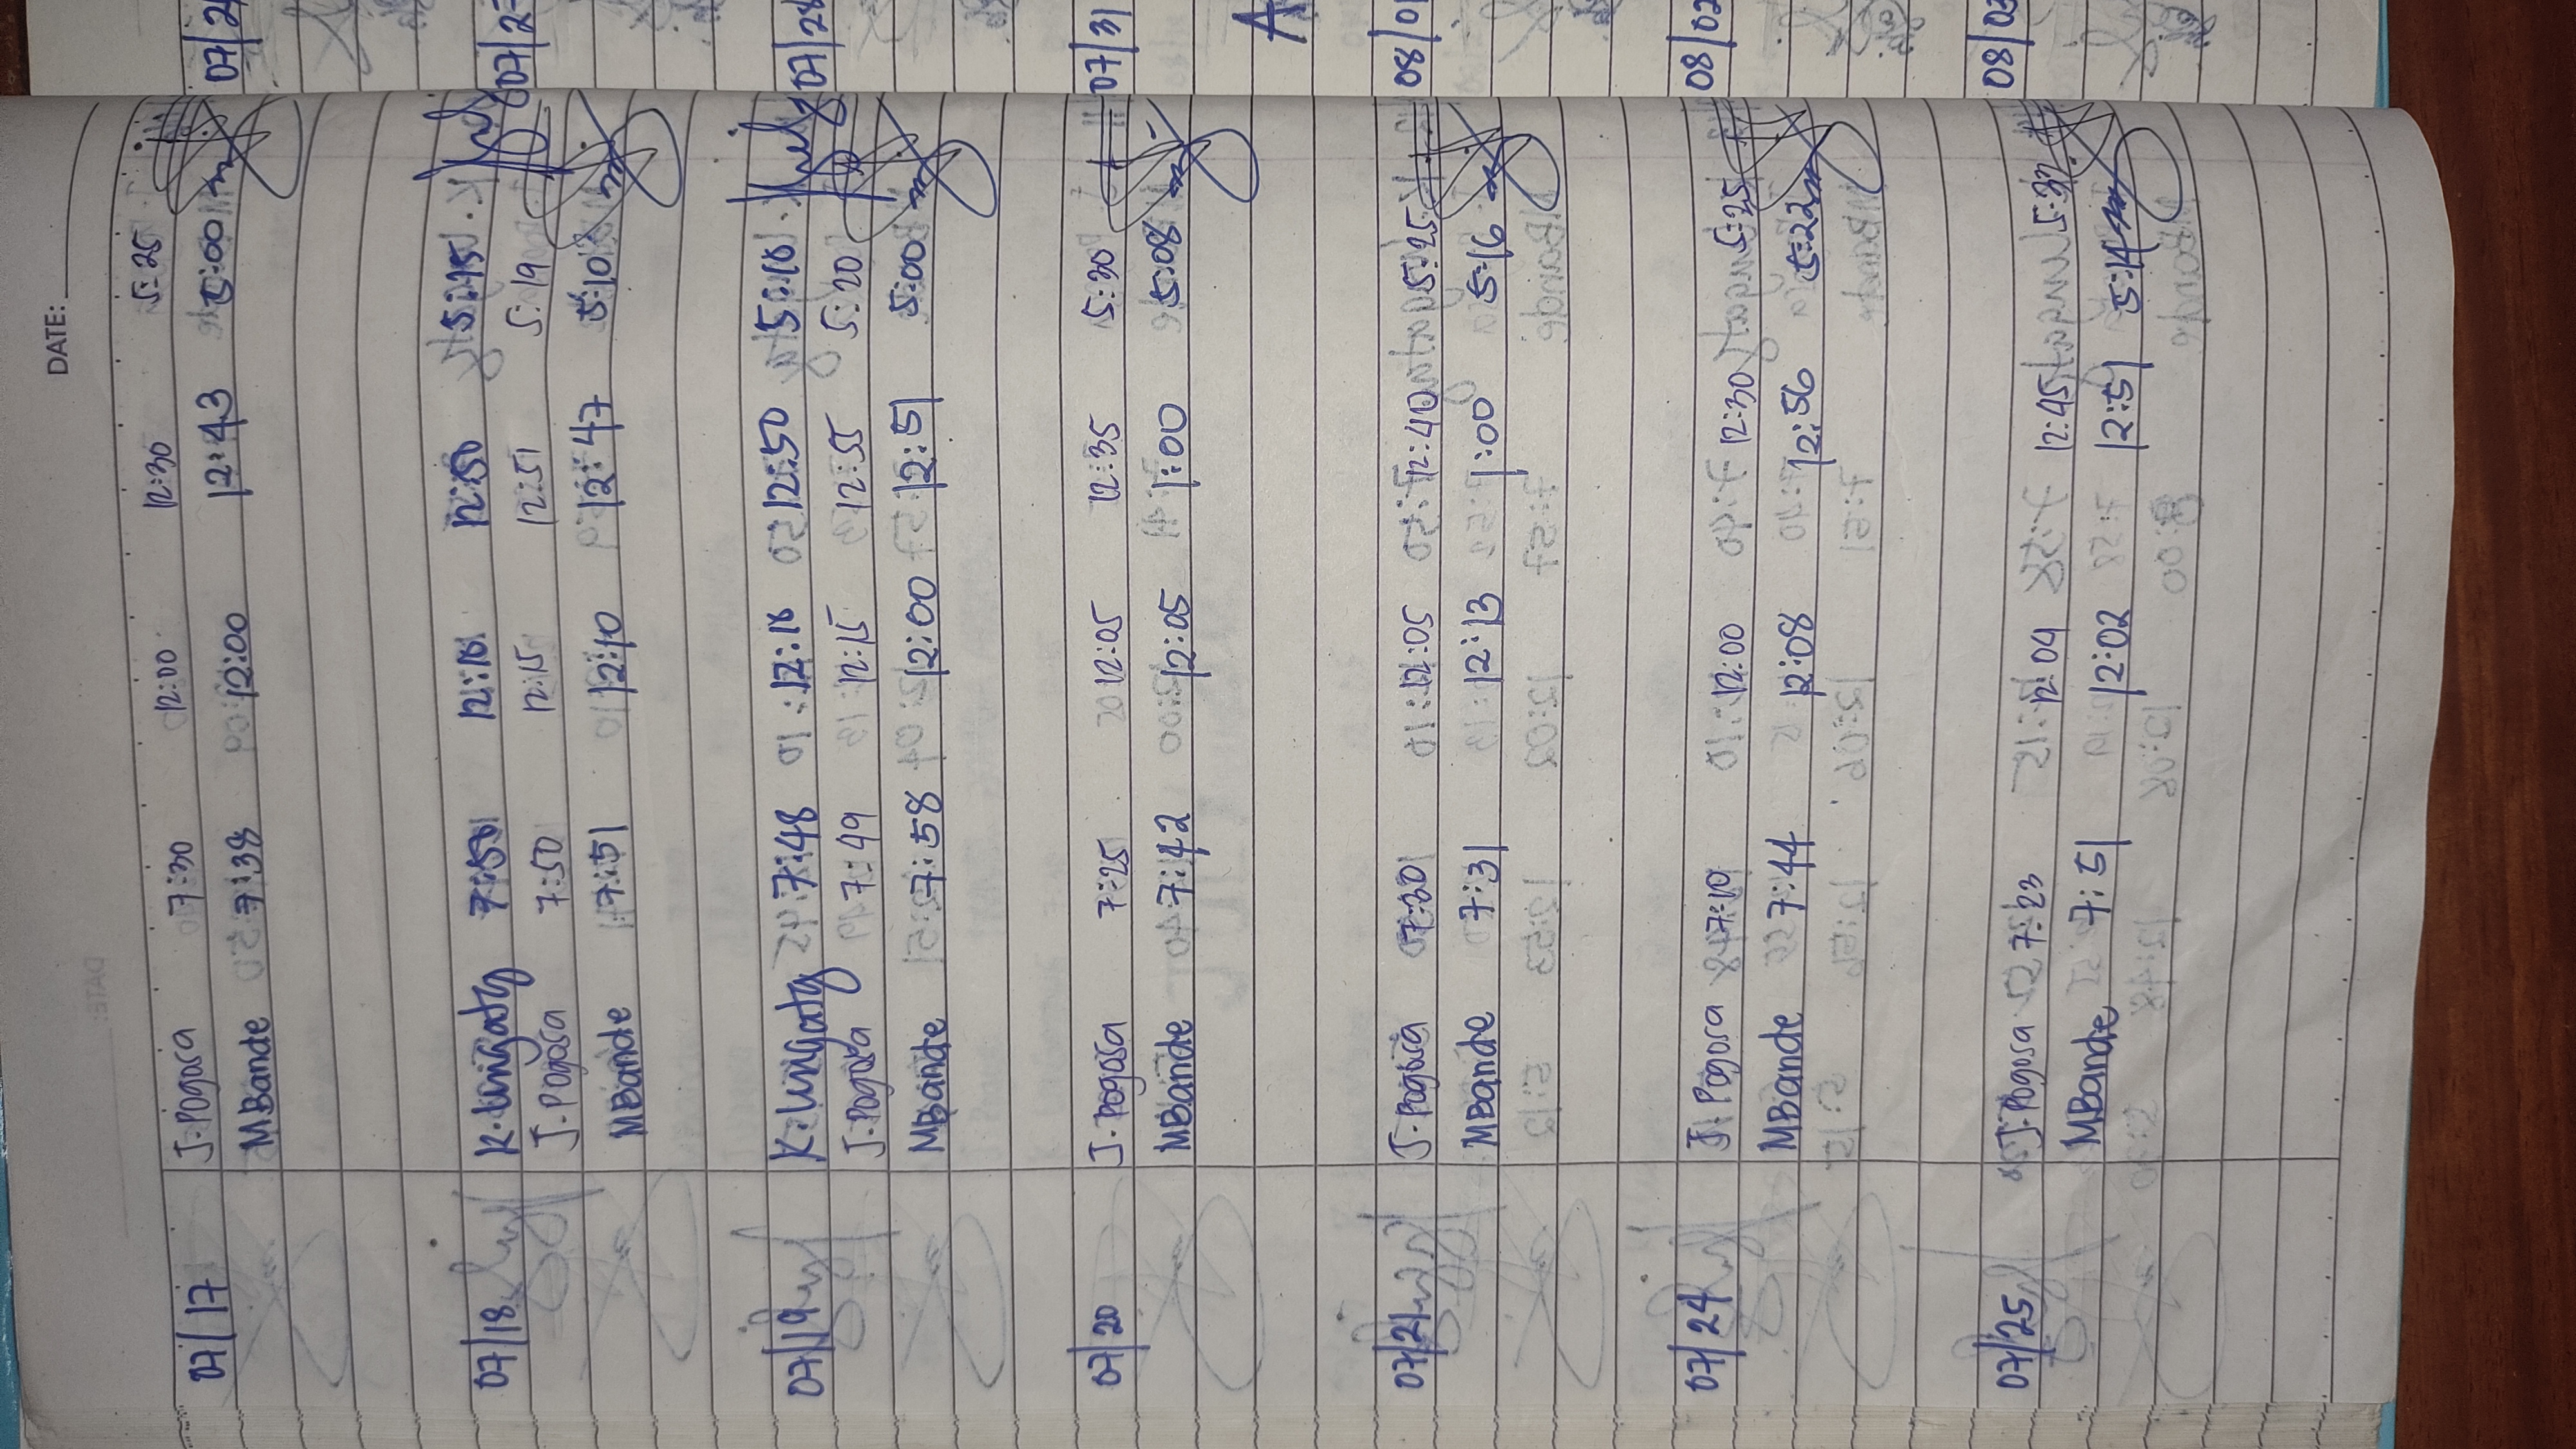 DATE:
07/17 J. Pogosa 7:30 12:00 12:30 5:25
MBande 7:38 12:00 12:43 5:00
07/18 K. Lumgatq 7:50 12:16 12:50 5:15
J. Pogosa 7:50 12:15 12:51 5:19
MBande 7:51 12:10 12:47 5:10
07/19 K. Lumgatq 7:48 12:16 12:50 5:16
J. Pogosa 7:49 12:15 12:55 5:20
MBande 7:58 12:00 12:51 5:00
07/20 J. Pogosa 7:25 12:05 12:35 5:30
MBande 7:42 12:05 1:00 5:08
07/21 J. Pogosa 7:30 12:05 12:40 5:25
MBande 7:31 12:13 1:00 5:16
07/24 J. Pogosa 7:19 12:00 12:30 5:25
MBande 7:44 12:08 12:56 5:22
07/25 J. Pogosa 7:23 12:04 12:45
MBande 7:51 12:02 12:51 5:14
07/31
A
08/01
08/02
08/03